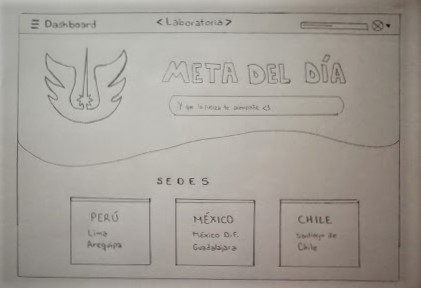 Dashboard
< Laboratoria >
META DEL DÍA
Y que la fuerza te acompañe <3
SEDES
PERÚ
Lima
Arequipa
MÉXICO
México D.F.
Guadalajara
CHILE
Santiago de
Chile